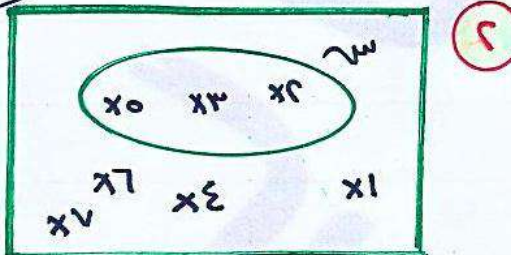 ٢
س
×٥ ×٣ ×٢
×٦ ×٤ ×١
×٧